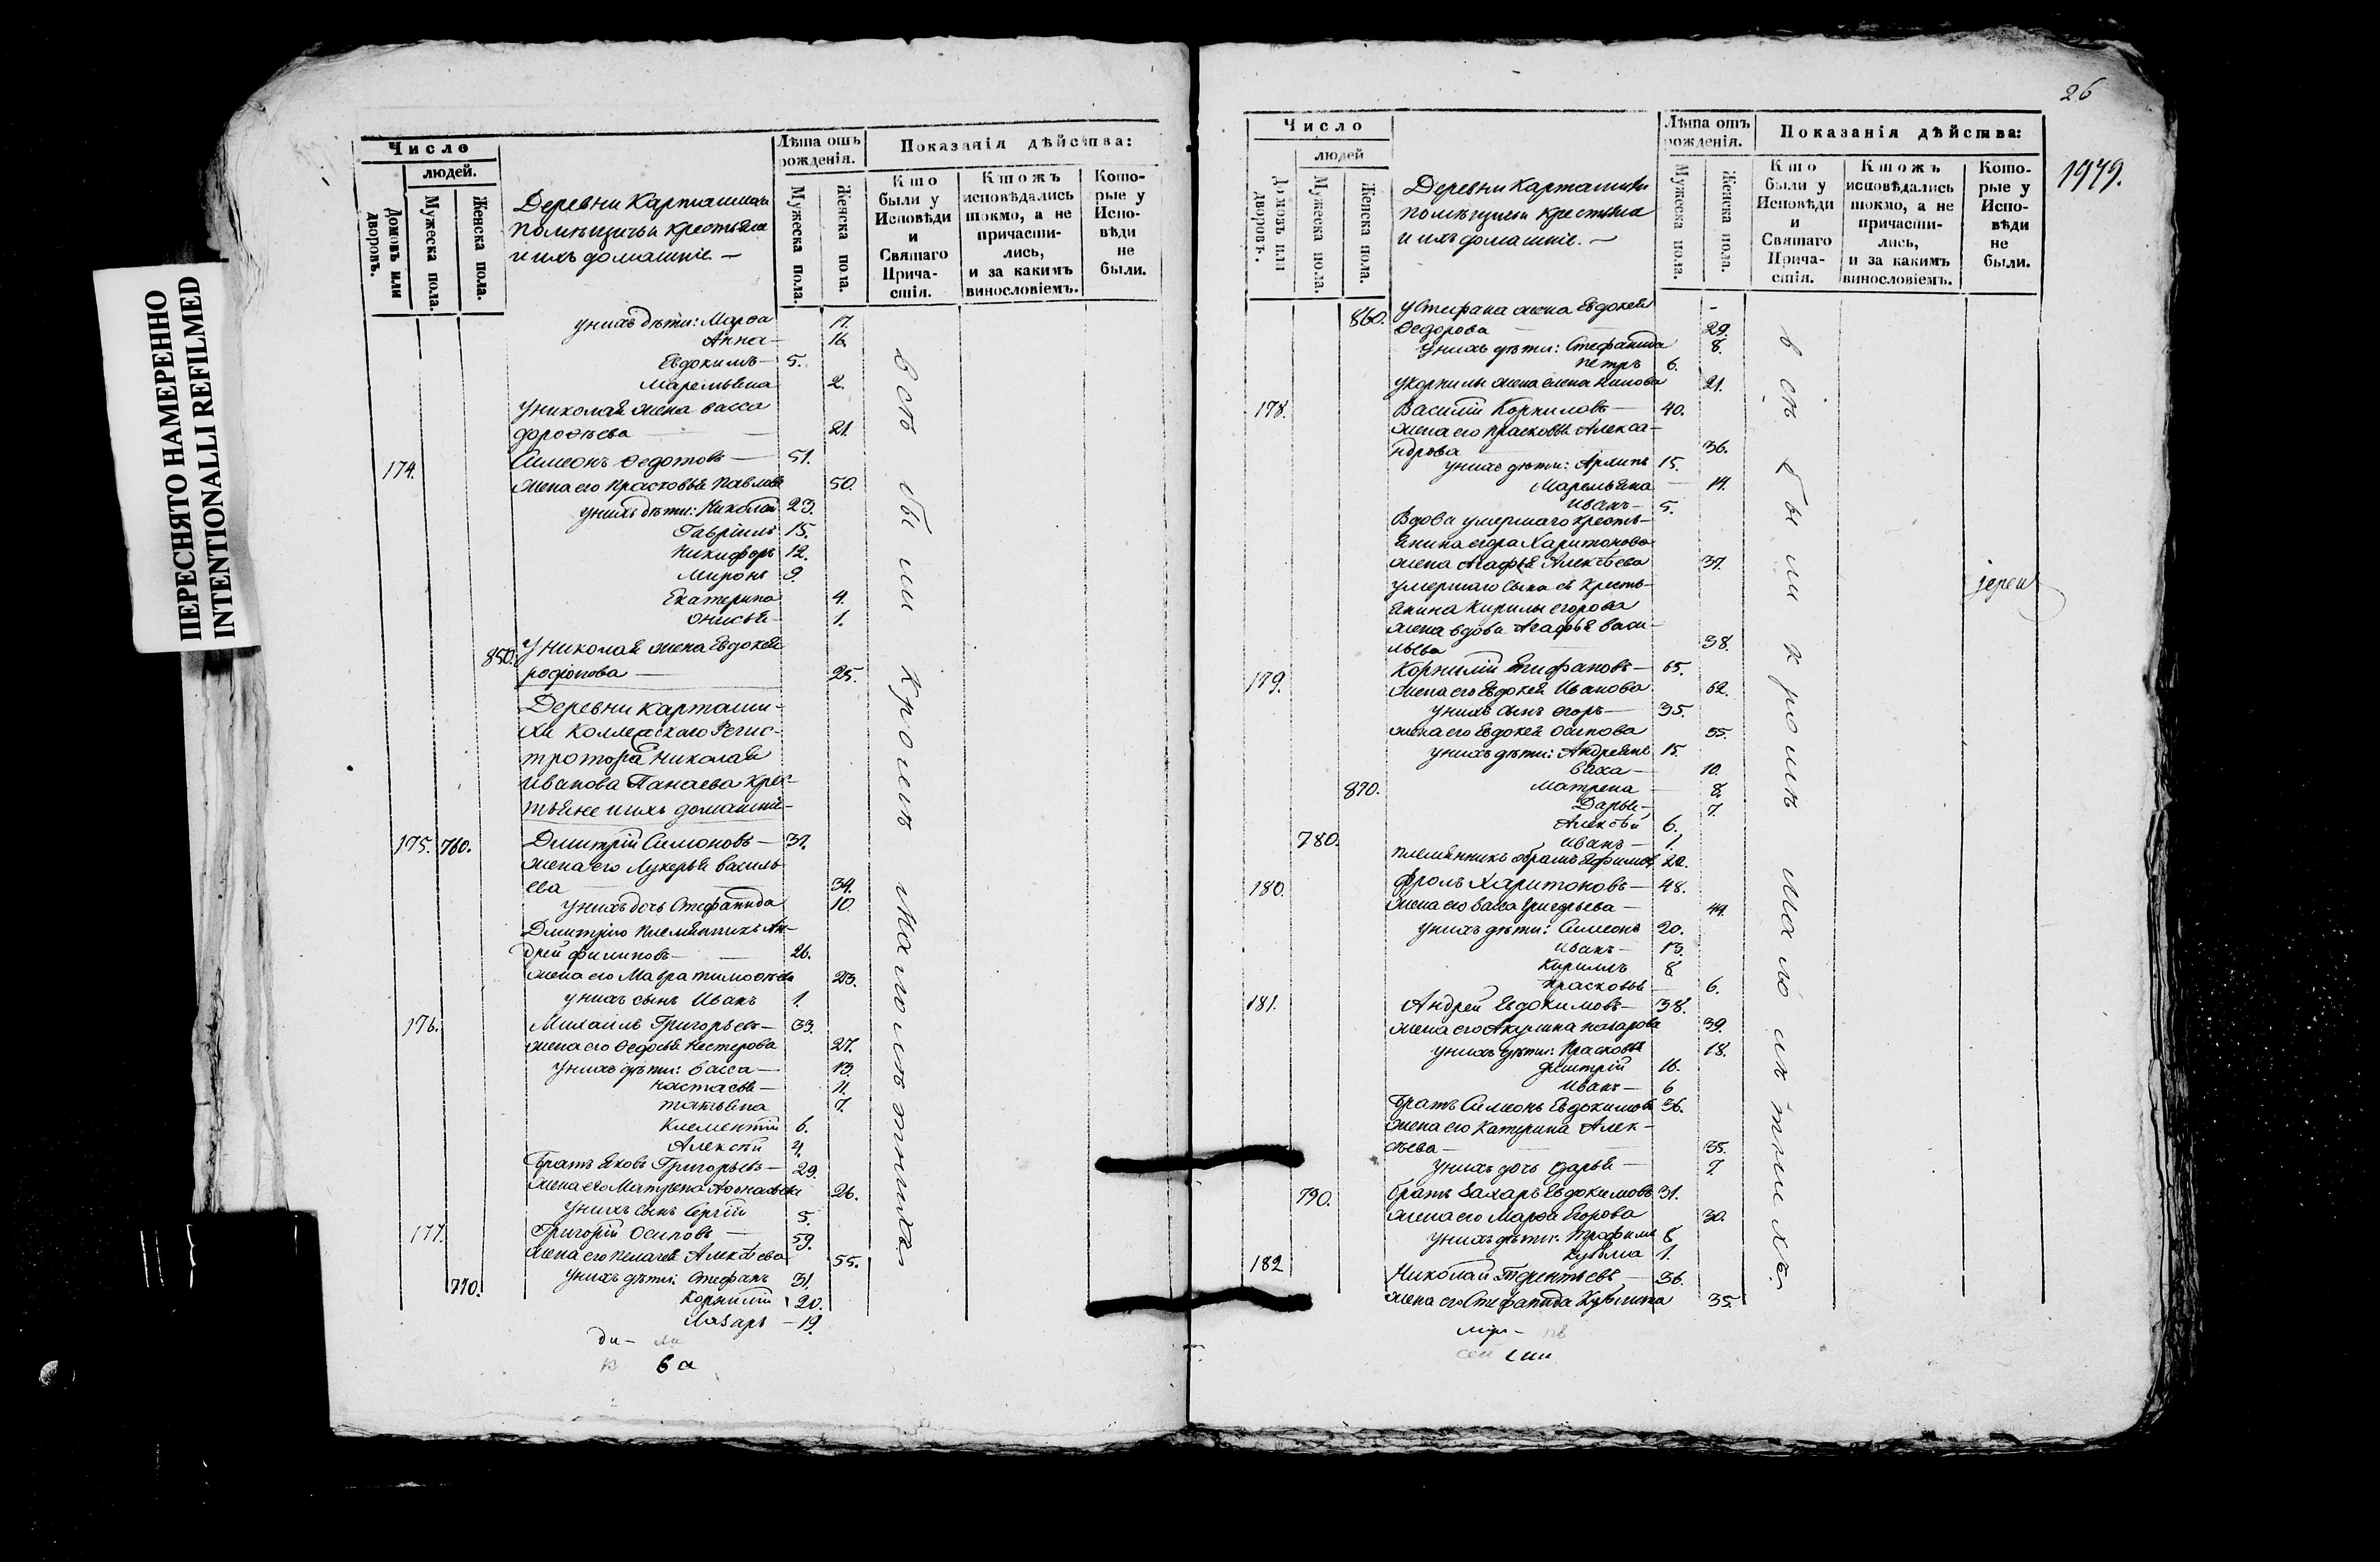 ПЕРЕСНЯТО НАМЕРЕННО
INTENTIONALLI REFILMED
Число
людей.
Домовъ или дворовъ.
Мужеска пола.
Женска пола.
Деревни Карташихи
помѣщичьи крестьяне
и ихъ домашніе —
Лѣта отъ рожденія.
Мужеска пола.
Женска пола.
Показанія дѣйства:
Кто были у Исповѣди и Святаго Прича-стія.
Ктожъ исповѣдались токмо, а не причасти-лись, и за какимъ винословіемъ.
Кото-рые у Испо-вѣди не были.
у нихъ дѣти: Марѳа 17.
Анна — 16.
Евдокимъ — 5.
Маремьяна 2.
у Николая жена Васса
Дороѳѣева — 21.
174. Симеонъ Ѳедотовъ — 51.
жена его Прасковья Павлова 50.
у нихъ дѣти: Николай 23.
Гавріилъ 15.
Никифоръ 12.
Миронъ 9.
Екатерина 4.
Онисья — 1.
850. у Николая жена Евдокея
Родіонова — 25.
Деревни Карташи-
хи Коллежскаго Регис-
тротора Николая
Иванова Панаева крес-
тьяне и ихъ домашніе —
175. 760. Дмитрій Симоновъ — 37.
жена его Лукерья Василь
ева 34.
у нихъ дочь Стефанида 10.
Дмитрію племянникъ Ан-
дрей Филиповъ — 26.
жена его Мавра Тимоѳѣева 23.
у нихъ сынъ Иванъ 1.
176. Михаилъ Григорьевъ — 33.
жена его Ѳедосья Нестерова 27.
у нихъ дѣти: Васса — 13.
Настасья — 11.
Татьяна 7.
Клементій 6.
Алексѣй 4.
Братъ Яковъ Григорьевъ — 29.
жена его Матрена Аѳонасьева 26.
у нихъ сынъ Сергій 5.
177. Григорій Осиповъ — 59.
жена его Пелагея Алексѣева 55.
у нихъ дѣти: Стефанъ 31.
770. Корнилій 20.
Лазарь — 19.
всѣ были кромѣ малолѣтнихъ
ва
26
1979.
Число
людей
Домовъ или дворовъ.
Мужеска пола.
Женска пола.
Деревни Карташихи
помѣщичьи крестьяне
и ихъ домашніе. —
Лѣта отъ рожденія.
Мужеска пола.
Женска пола.
Показанія дѣйства:
Кто были у Исповѣди и Святаго Прича-стія.
Ктожъ исповѣдались токмо, а не причасти-лись, и за какимъ винословіемъ.
Кото-рые у Испо-вѣди не были.
860. у Стефана жена Евдокея
Ѳедорова 29.
у нихъ дѣти: Стефанида 8.
Петръ 6.
у Корнилы жена Елена 21.
178. Василій Корниловъ — 40.
жена его Прасковья Алекса-
ндрова 36.
у нихъ дѣти: Архипъ 15.
Маремьяна — 14.
Иванъ — 5.
Вдова умершаго кресть-
янина Егора Харитонова
жена Агафья Алексѣева 37.
умершаго сына ея кресть-
янина Кирилы Егорова
жена вдова Агафья Васи-
льева 38.
179. Корнилій Епифановъ — 65.
жена его Евдокея Иванова 62.
у нихъ сынъ Егоръ — 35.
жена его Евдокея Осипова 35.
у нихъ дѣти: Андреянъ 15.
10.
870. Матрена — 8.
Дарья — 7.
Алексѣй 6.
780. Иванъ — 1.
племянникъ Абрамъ Ефимов 20.
180. Фролъ Харитоновъ — 48.
жена его Васса Григорьева — 49.
у нихъ дѣти: Симеонъ 20.
Иванъ — 13.
Кириллъ 8
Прасковья — 6.
181. Андрей Евдокимовъ — 38.
жена его Акулина Назарова 39.
у нихъ дѣти: Прасковья 18.
Дмитрій 16.
Иванъ — 6
Братъ Симеонъ Евдокимовъ 36.
жена его Катерина Алек-
сѣева — 35.
у нихъ дочь Дарья — 7.
790. братъ Захаръ Евдокимовъ 31.
жена его Марѳа Егорова 30.
у нихъ дѣти: Трофимъ 8
Кузьма 1.
182 Николай Терентьевъ — 36.
жена его Стефанида Кузьмина 35.
всѣ были кромѣ малолѣтнихъ.
іерей